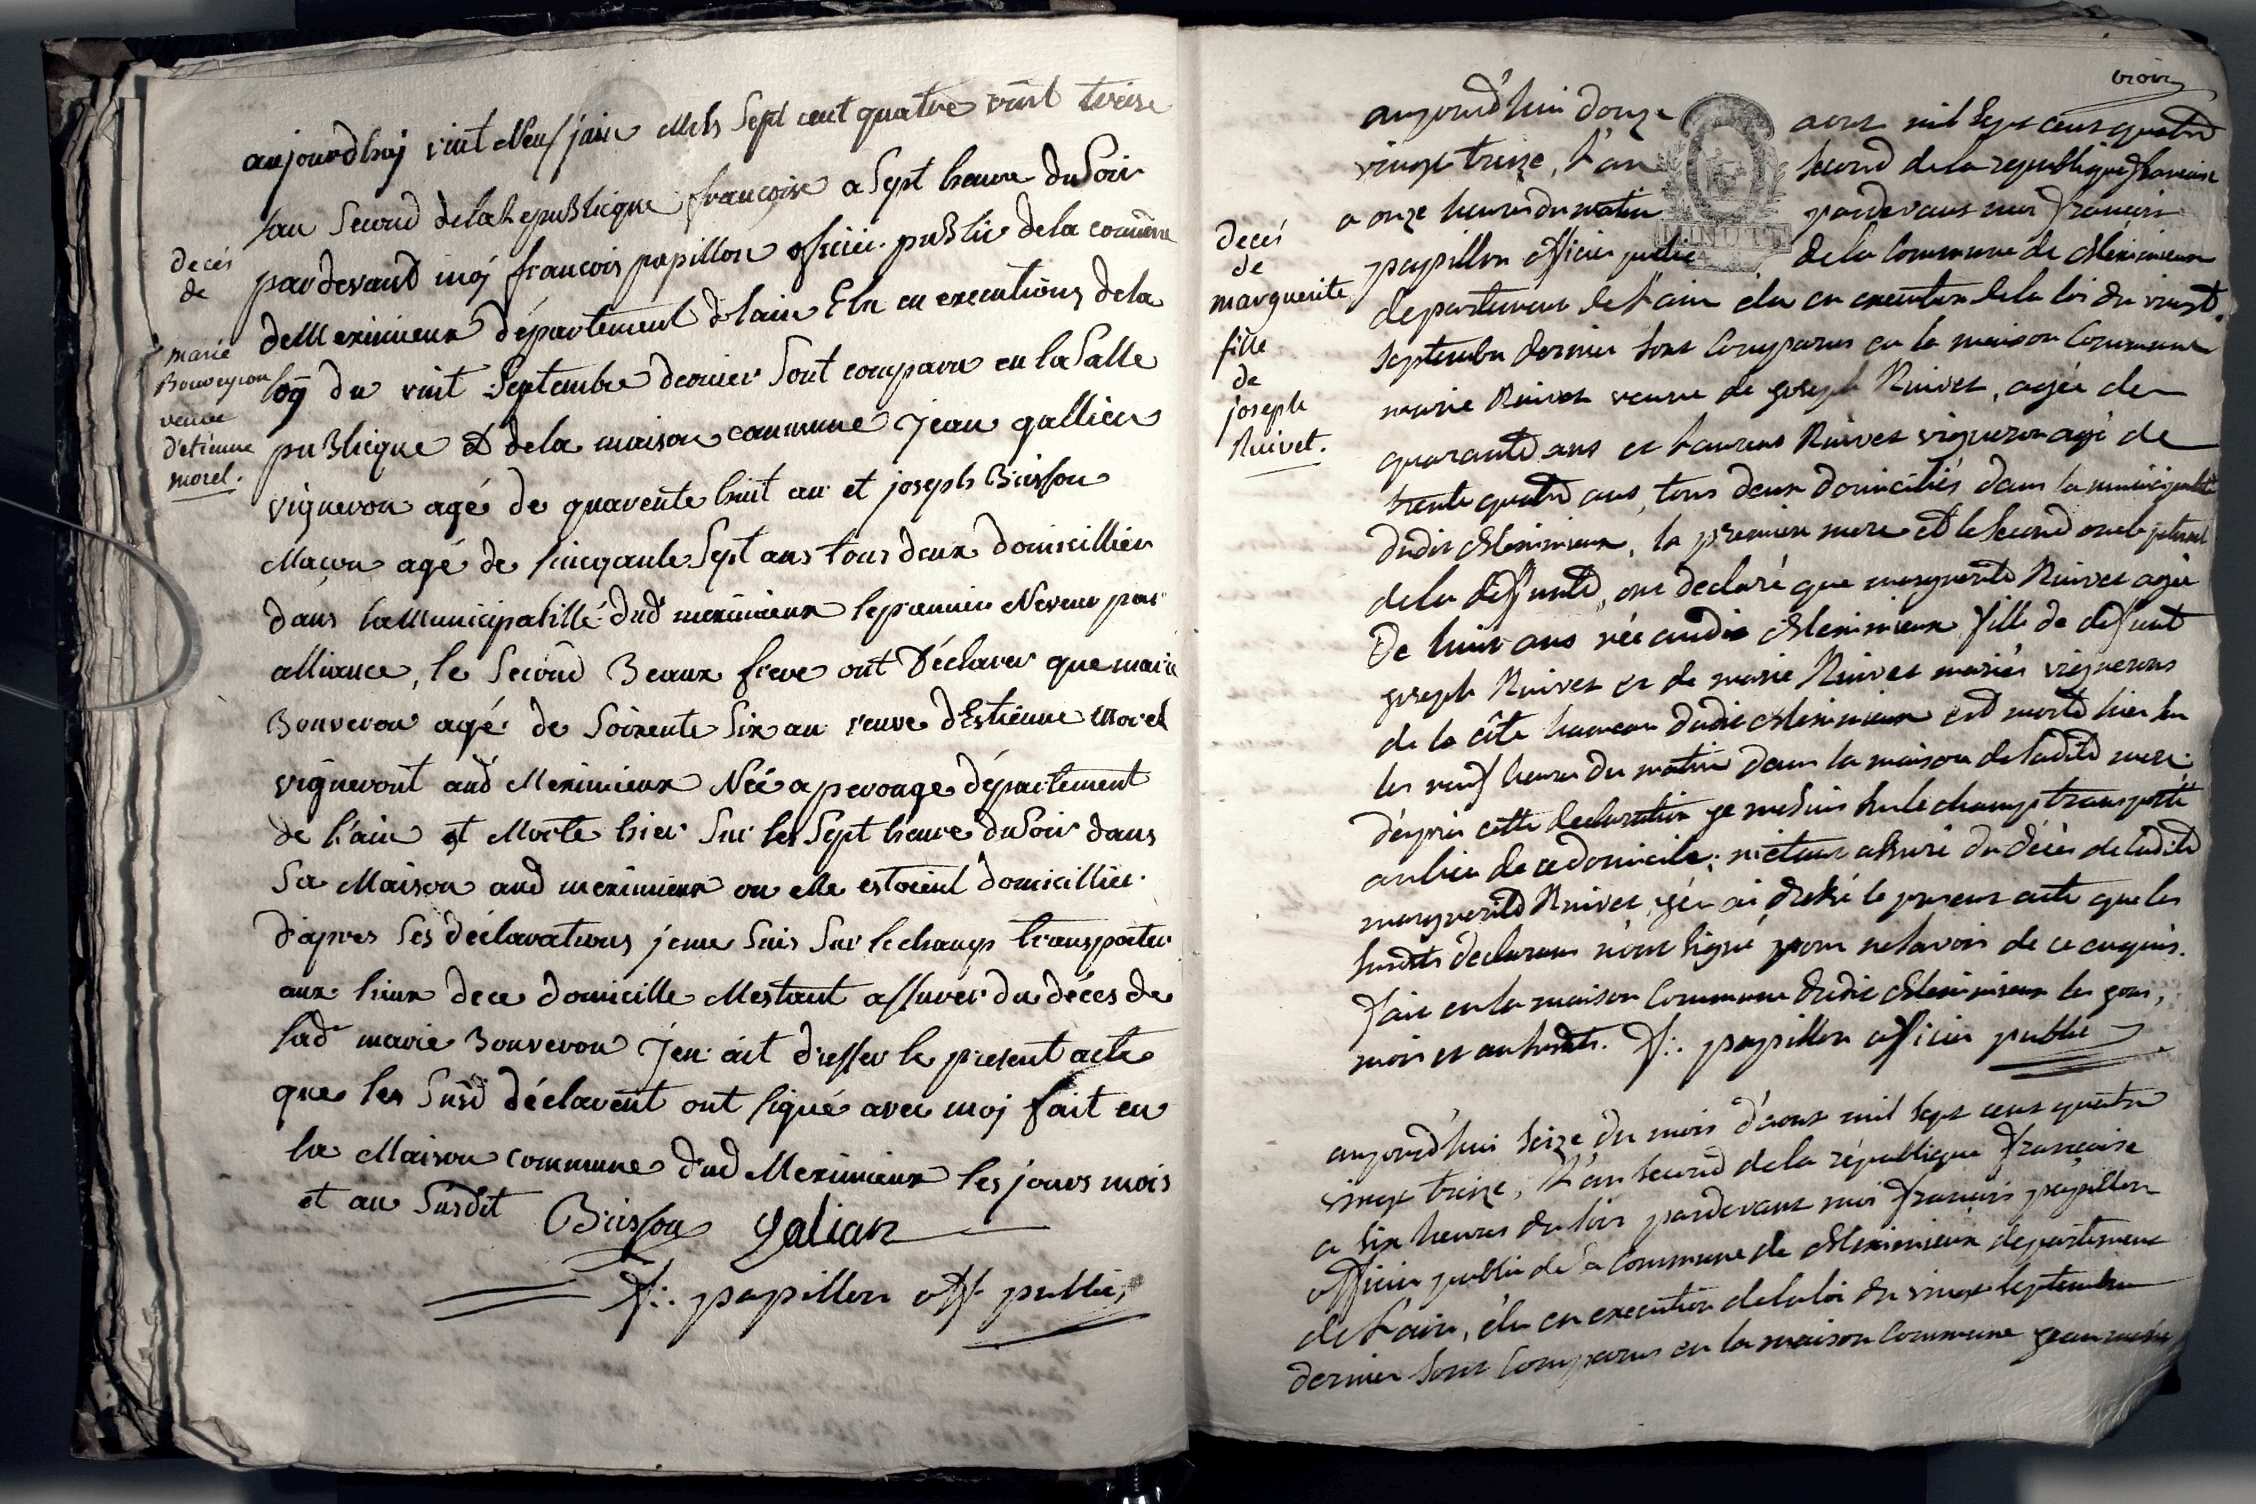 aujourdhuj vint Neuf juin Mils Sept cent quatre vint treise
lan Second dela Republicque françoise a Sept heure du Soir
pardevand moj francois papillon officier public dela commune
de Meximieux département delain Elu en executions dela
loÿ du vint Septembre dernier Sont comparu en la Salle
publicque et dela maison commune jean gallien
vigneron agé de quarente huit an et joseph Buisson
Maçon agé de sincqante Sept ans tous deux domicillier
dans la Municipalitté dud meximieux le premier Neveux par
alliance, le Second Beaux frere ont Déclarer que marie
Bouveron agé de Soixente Six an veuve d'Estienne Morel
vigneront aud Meximieux Néé a perouge département
de l'ain et Morte hier Sur les Sept heure du Soir dans
Sa Maison aud meximieux ou elle estoient domicillier
d'apres Ses déclarations je me Suis Sur le champ transporter
aux lieux de ce domicille Mestant assurer du décés de
lad marie Bouveron J'en ait dresser le present acte
que les Susd déclarent ont signé avec moj fait en
la Maison commune dud Meximieux les jours mois
et an Susdit Buisson galian
f: papillon off public
decés
de
marie
Bouveyron
veuve
d'etienne
morel.
aujourd'hui douze aout mil sept cent quatre
vingt treize, l'an second de la republique francaise
a onze heures du matin pardevant moi francois
papillon officier public de la commune de Meximieux
departement de l'ain elu en execution de la loi du vingt
septembre dernier sont comparus en la maison commune
marie Ruivet veuve de joseph Ruivet, agée de
quarante ans et Laurent Ruivet vigneron agé de
trente quatre ans, tous deux domiciliés dans la municipalité
dudit Meximieux, la premiere mere et le second oncle paternel
de la deffunte, ont declaré que marguerite Ruivet agée
de huit ans née audit Meximieux fille de defunt
joseph Ruivet et de marie Ruivet mariés vignerons
de la côte hameau dudit Meximieux est morte hier sur
les neuf heures du matin dans la maison de ladite mere.
d'après cette declaration je me suis sur le champ transporté
au lieu de ce domicile; m'etant assuré du décès de ladite
marguerite Ruivet, j'en ai dressé le present acte que les
susdits declarans n'ont signé pour ne savoir de ce enquis.
fait en la maison commune dudit Meximieux les jour,
mois et an susdits. f: papillon officier public
decés
de
marguerite
fille
de
joseph
Ruivet.
MINUTE
aujourd'hui seize du mois d'aout mil sept cent quatre
vingt treize, l'an second de la république francaise
a six heures du soir pardevant moi francois papillon
officier public de la commune de Meximieux departement
de l'ain, élu en execution de la loi du vingt septembre
dernier sont comparus en la maison commune jean